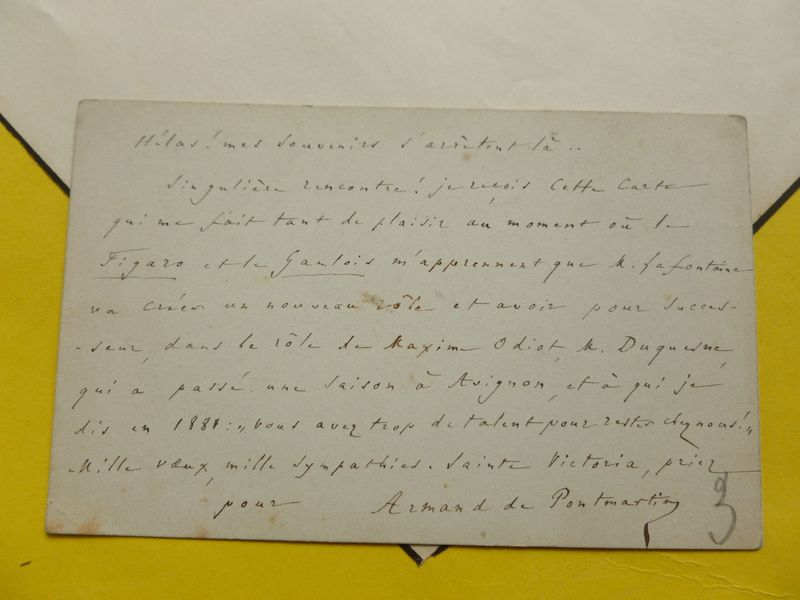 Hélas ! mes souvenirs s'arrêtent là ..
Singulière rencontre ! je reçois cette carte
qui me fait tant de plaisir au moment où le
Figaro et le Gaulois m'apprennent que M. Lafontaine
va créer un nouveau rôle et avoir pour succes-
-seur, dans le rôle de Maxime Odiot, M. Duquesne,
qui a passé une saison à Avignon, et à qui je
dis en 1881 : „Vous avez trop de talent pour rester chez nous ! „
Mille vœux, mille sympathies. Sainte Victoria, priez
pour Armand de Pontmartin
3